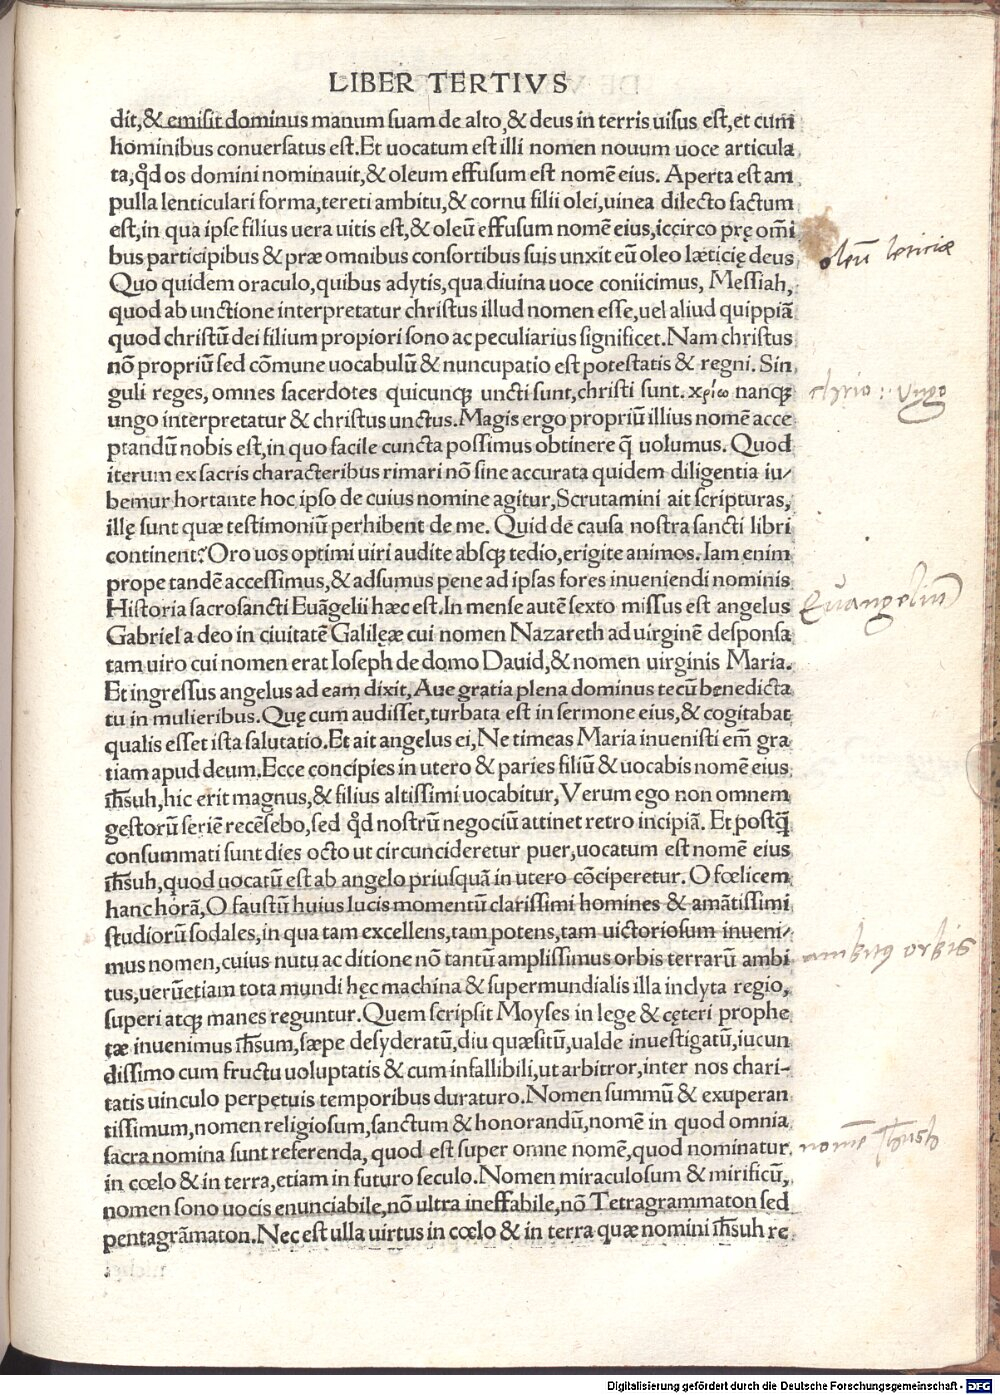 LIBER TERTIVS
dit,& emisit dominus manum suam de alto,& deus in terris uisus est,et cum
hominibus conuersatus est.Et uocatum est illi nomen nouum uoce articula
ta,qđ os domini nominauit,& oleum effusum est nomē eius. Aperta est am
pulla lenticulari forma,tereti ambitu,& cornu filii olei,uinea dilecto factum
est,in qua ipse filius uera uitis est,& oleū effusum nomē eius,iccirco prę om̄i
bus participibus & præ omnibus consortibus suis unxit eū oleo læticię deus
oleū leticiæ
Quo quidem oraculo,quibus adytis,qua diuina uoce coniicimus, Messiah,
quod ab unctione interpretatur christus illud nomen esse,uel aliud quippiā
quod christū dei filium propiori sono ac peculiarius significet.Nam christus
nō propriū sed cōmune uocabulū & nuncupatio est potestatis & regni. Sin
guli reges, omnes sacerdotes quicunq; uncti sunt,christi sunt. χρίω nanq;
chrio :: Vngo
ungo interpretatur & christus unctus.Magis ergo propriū illius nomē acce
ptandū nobis est,in quo facile cuncta possimus obtinere q̄ uolumus. Quod
iterum ex sacris characteribus rimari nō sine accurata quidem diligentia iu/
bemur hortante hoc ipso de cuius nomine agitur,Scrutamini ait scripturas,
illę sunt quæ testimoniū perhibent de me. Quid dē causa nostra sancti libri
continent? Oro uos optimi uiri audite absq; tedio,erigite animos. Iam enim
prope tandē accessimus,& adsumus pene ad ipsas fores inueniendi nominis
Historia sacrosancti Euāgelii hæc est.In mense autē sexto missus est angelus
Euangelium
Gabriel a deo in ciuitatē Galilęæ cui nomen Nazareth ad uirginē desponsa
tam uiro cui nomen erat Ioseph de domo Dauid,& nomen uirginis Maria.
Et ingressus angelus ad eam dixit, Aue gratia plena dominus tecū benedicta
tu in mulieribus.Quę cum audisset,turbata est in sermone eius,& cogitabat
qualis esset ista salutatio.Et ait angelus ei, Ne timeas Maria inuenisti em̄ gra
tiam apud deum.Ecce concipies in utero & paries filiū & uocabis nomē eius
ih̄suh,hic erit magnus,& filius altissimi uocabitur, Verum ego non omnem
gestorū seriē recēsebo,sed qđ nostrū negociū attinet retro incipiā. Et postq̄
consummati sunt dies octo ut circuncideretur puer,uocatum est nomē eius
ih̄suh,quod uocatū est ab angelo priusquā in utero cōciperetur. O fœlicem
hanc horā,O faustū huius lucis momentū clarissimi homines & amātissimi
studiorū sodales,in qua tam excellens,tam potens,tam uictoriosum inueni/
mus nomen,cuius nutu ac ditione nō tantū amplissimus orbis terrarū ambi
ambitus orbis
tus,uerūetiam tota mundi hęc machina & supermundialis illa inclyta regio,
superi atq; manes reguntur.Quem scripsit Moyses in lege & cęteri prophe
tæ inuenimus ih̄sum,sæpe desyderatū,diu quæsitū,ualde inuestigatū,iucun
dissimo cum fructu uoluptatis & cum infallibili,ut arbitror,inter nos chari-
tatis uinculo perpetuis temporibus duraturo.Nomen summū & exuperan
tissimum,nomen religiosum,sanctum & honorandū,nomē in quod omnia
sacra nomina sunt referenda, quod est super omne nomē,quod nominatur
nomē Ih̄suh
in cœlo & in terra,etiam in futuro seculo. Nomen miraculosum & mirificū,
nomen sono uocis enunciabile,nō ultra ineffabile,nō Tetragrammaton sed
pentagrāmaton.Nec est ulla uirtus in cœlo & in terra quæ nomini ih̄suh re
Digitalisierung gefördert durch die Deutsche Forschungsgemeinschaft - DFG